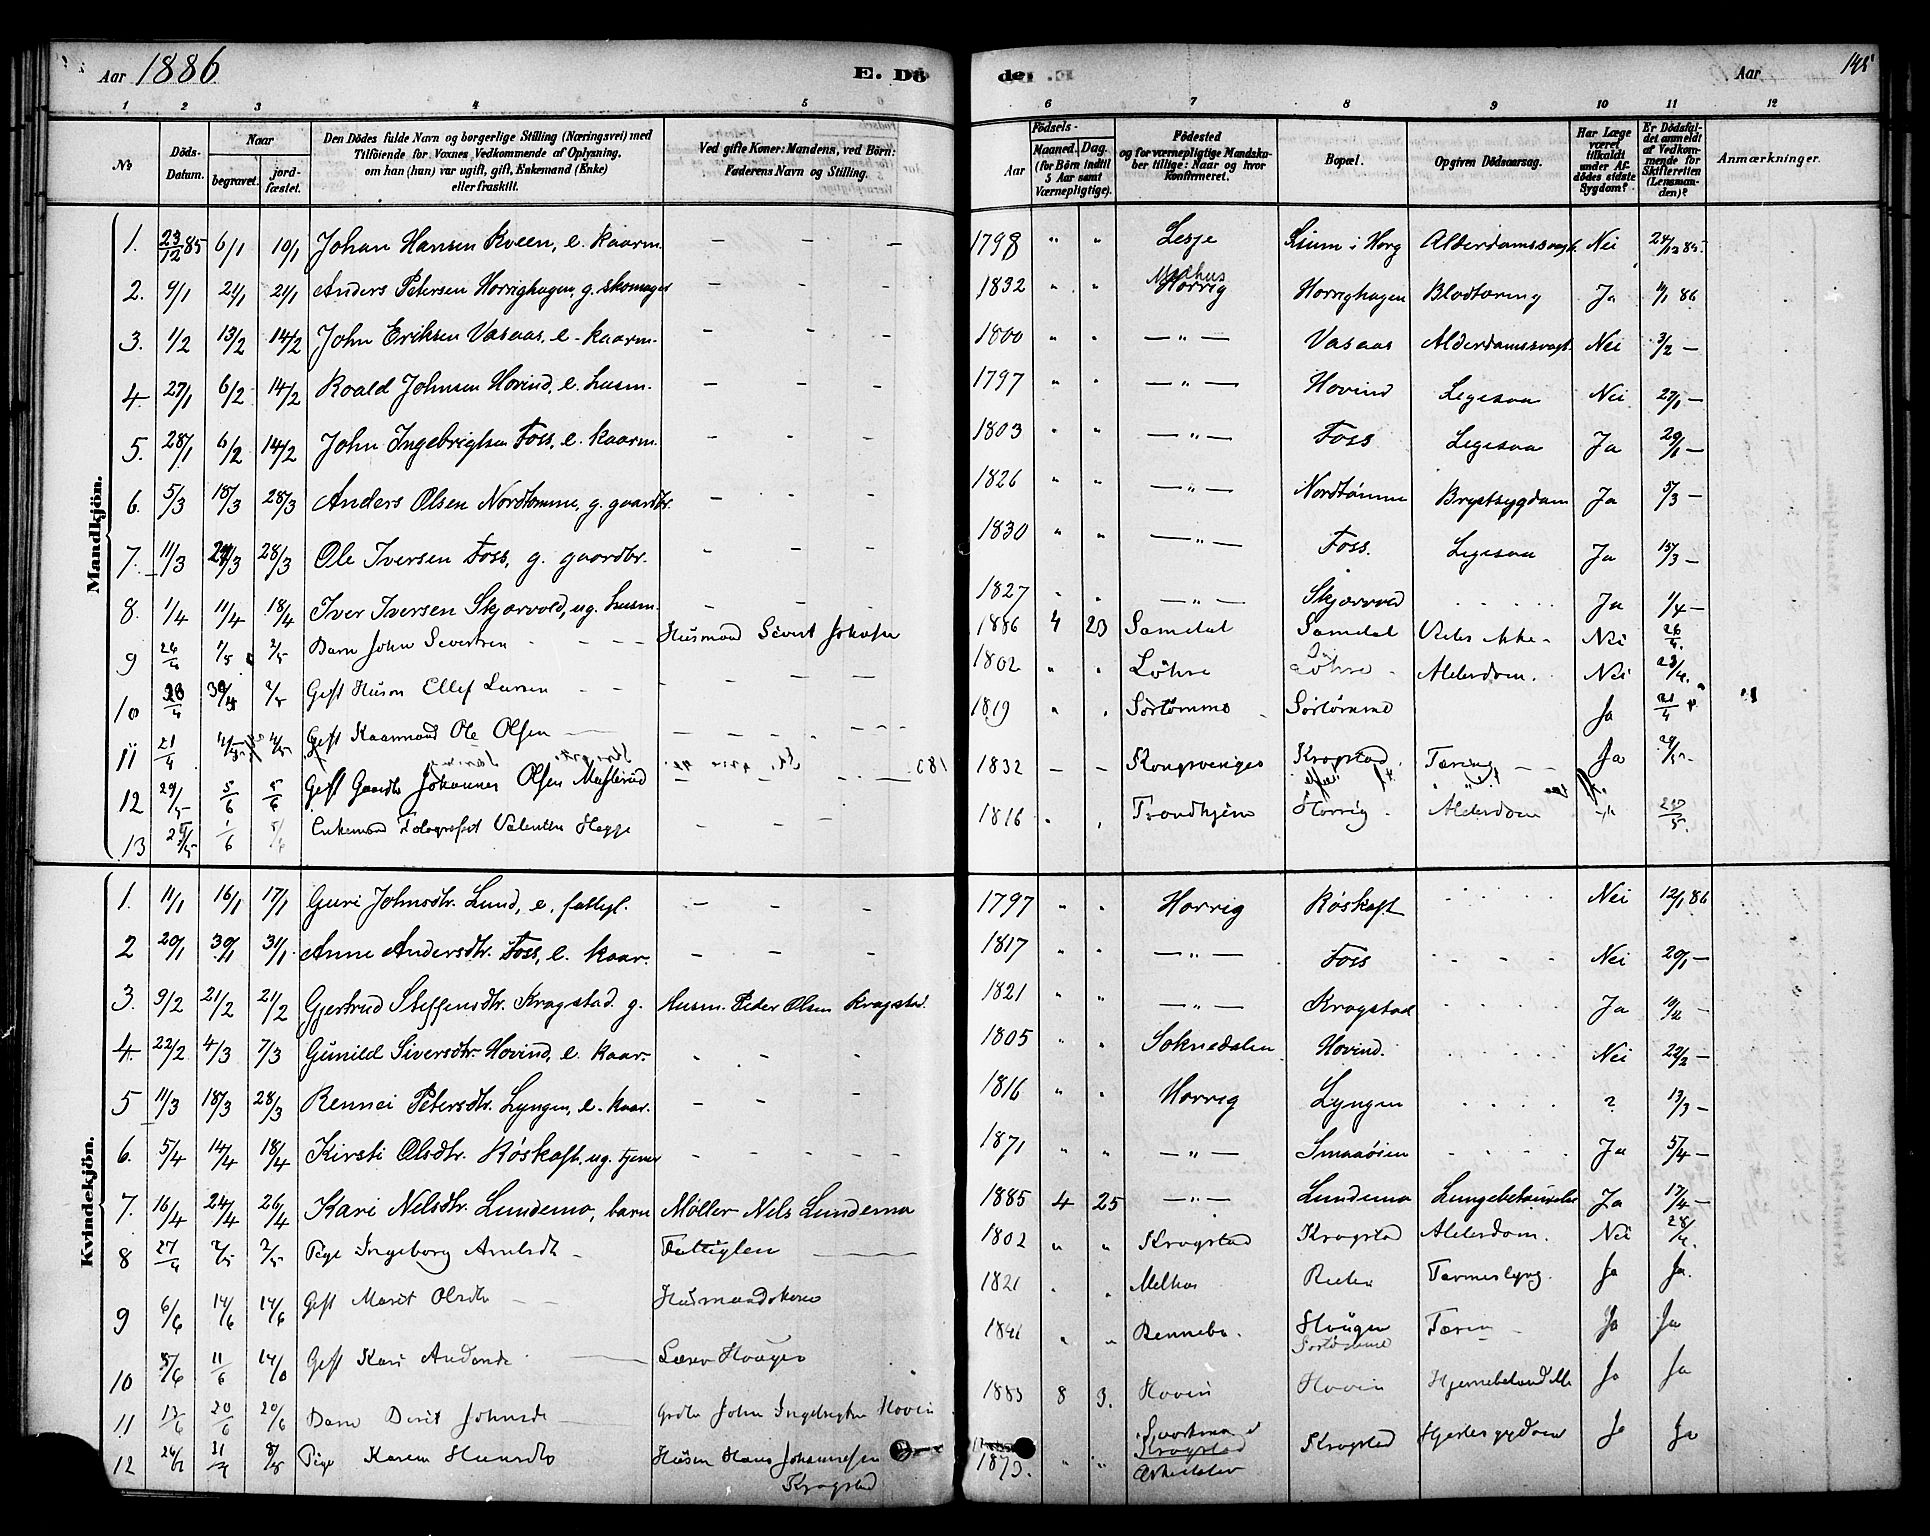 Aar 1886
E. Dö
de
Aar
145
1 2 3 4 5 6 7 8 9 10 11 12
№
Döds-Datum.
Naar
begravet.
jord-fæstet.
Den Dödes fulde Navn og borgerlige Stilling (Næringsvei) med
Tilföiende for Voxnes Vedkommende af Oplysning,
om han (hun) var ugift, gift, Enkemand (Enke)
eller fraskilt.
Ved gifte Koner: Mandens, ved Börn:
Faderens Navn og Stilling.
Födsels-
Aar
Maaned. Dag.
(for Börn indtil
5 Aar samt
Værnepligtige).
Födested
og for værnepligtige Mandska-
ber tillige: Naar og hvor
Konfirmeret.
Bopæl.
Opgiven Dödsaarsag.
Har Læge
været
tilkaldt
under Af-
dödes sidste
Sygdom?
Er Dödsfal-
det anmeldt
af Vedkom-
mende for
Skifteretten
(Lensman-
den)?
Anmærkninger.
Mandkjön.
1. 23/12 85 6/1 10/1 Johan Hansen Kveen, e. kaarm. — — — 1798 " " Lesje Lium i Horg Alderdomssvagh. Nei 24/12 85
2. 9/1 21/1 21/1 Anders Petersen Horrighagen, g. skomager — — — 1832 " " Melhus Horrig Horrighagen Blodtæring Ja 11/1 86
3. 1/2 13/2 14/2 John Eriksen Vasaas, e. kaarm. — — — 1800 " " — " — Vasaas Alderdomssvagh. Nei 3/2 —
4. 27/1 6/2 14/2 Roald Johnsen Hovind, e. husm. — — — 1797 " " — " — Hovind Legesaa Nei 29/1 —
5. 28/1 6/2 14/2 John Ingebrigtsen Foss, e. kaarm. — — — 1803 " " — " — Foss Legesaa Ja 29/1 —
6. 5/3 18/3 28/3 Anders Olsen Nordtømme, g. gaardbr. — — — 1826 " " — " — Nordtømme Brystsygdom Ja 5/3 —
7. 11/3 24/3 28/3 Ole Iversen Foss, g. gaardbr. — — — 1830 " " — " — Foss. Legesaa Ja 15/3 —
8. 1/4 11/4 18/4 Iver Iversen Skjærvold, ug. husm. — — — 1827 " " — " — Skjærvold Ja 1/4 —
9 26/4 2/5 2/5 Barn John Severtsen Husmand Sivert Johnsen 1886 4 23 Samdal Samdal Vides ikke Nei 26/4.
10 30/4 2/5 Gift Husm Ellef Larsen 1802 " " Løhre Løhre Alderdom. Nei 28/4.
11 21/4 Gift Kaarmand Ole Olsen 1819 " " Sørtømme Sørtømme Ja 21/4
12 29/5 5/6 5/6 Gift Gaardb Johannes Olsen 1832 – – Kongsvinger Krogstad. Tæring Ja 29/5
13 25/5 1/6 5/6 Enkemand Fotograf Valentin 1816 " " Trondhjem Horrig Alderdom
Kvindekjön.
1. 11/1 16/1 17/1 Guri Johnsdtr. Lund, e. fattigl. — — — 1797 " " Horrig Røskaft Nei 12/1 86
2 20/1 30/1 31/1 Anne Andersdtr. Foss, e. kaar. — — — 1817 " " — " — Foss Nei 20/1 —
3. 9/2 21/2 21/2 Gjertrud Steffensdtr. Krogstad. g. Husm. Peder Olsen Krogstad. 1821 " " — " — Krogstad Ja
4 22/2 4/3 7/3 Gunild Siversdtr. Hovind, e. kaar. — — — 1805 " " Soknedalen Hovind. Nei 22/2 —
5 11/3 18/3 28/3 Rennei Petersdtr. Lyngen, e. kaar. — — — 1816 " " Horrig Lyngen ? 13/3 —
6. 5/4 14/4 18/4 Kirsti Olsdtr. Røskaft, ug. tjener 1871 " " — " — Smaaøien Ja 5/4 —
7. 16/4 24/4 26/4 Kari Nilsdtr. Lundemo, barn Møller Nils Lundemo 1885 4 25 — " — Lundemo Lungebetændelse Ja 17/4 —
8 27/4 2/5 2/5 Pige Ingeborg Fattiglem 1802 " " Krogstad Krogstad Alderdom. Nei 28/4.
9 6/6 14/6 14/6 Gift Marit Olsdtr Husmandskone 1821 Melhus Ja Ja.
10 8/6 11/6 14/6 Gift Kari 1841 " " Rennebo. Haugen Sørtømme Ja Ja
11 13/6 20/6 20/6 Barn Berit Johnsdt Grdbr John Ingebrigtsen Hovin 1885 8 3. Hovin Hovin Hjernebetændelse Ja Ja
12 Pige Karen Hansdtr Husm Hans Johannesen Krogstad 1873. " " Krogstad Arbeidsløs Krogstad Hjertesygdom Ja Ja